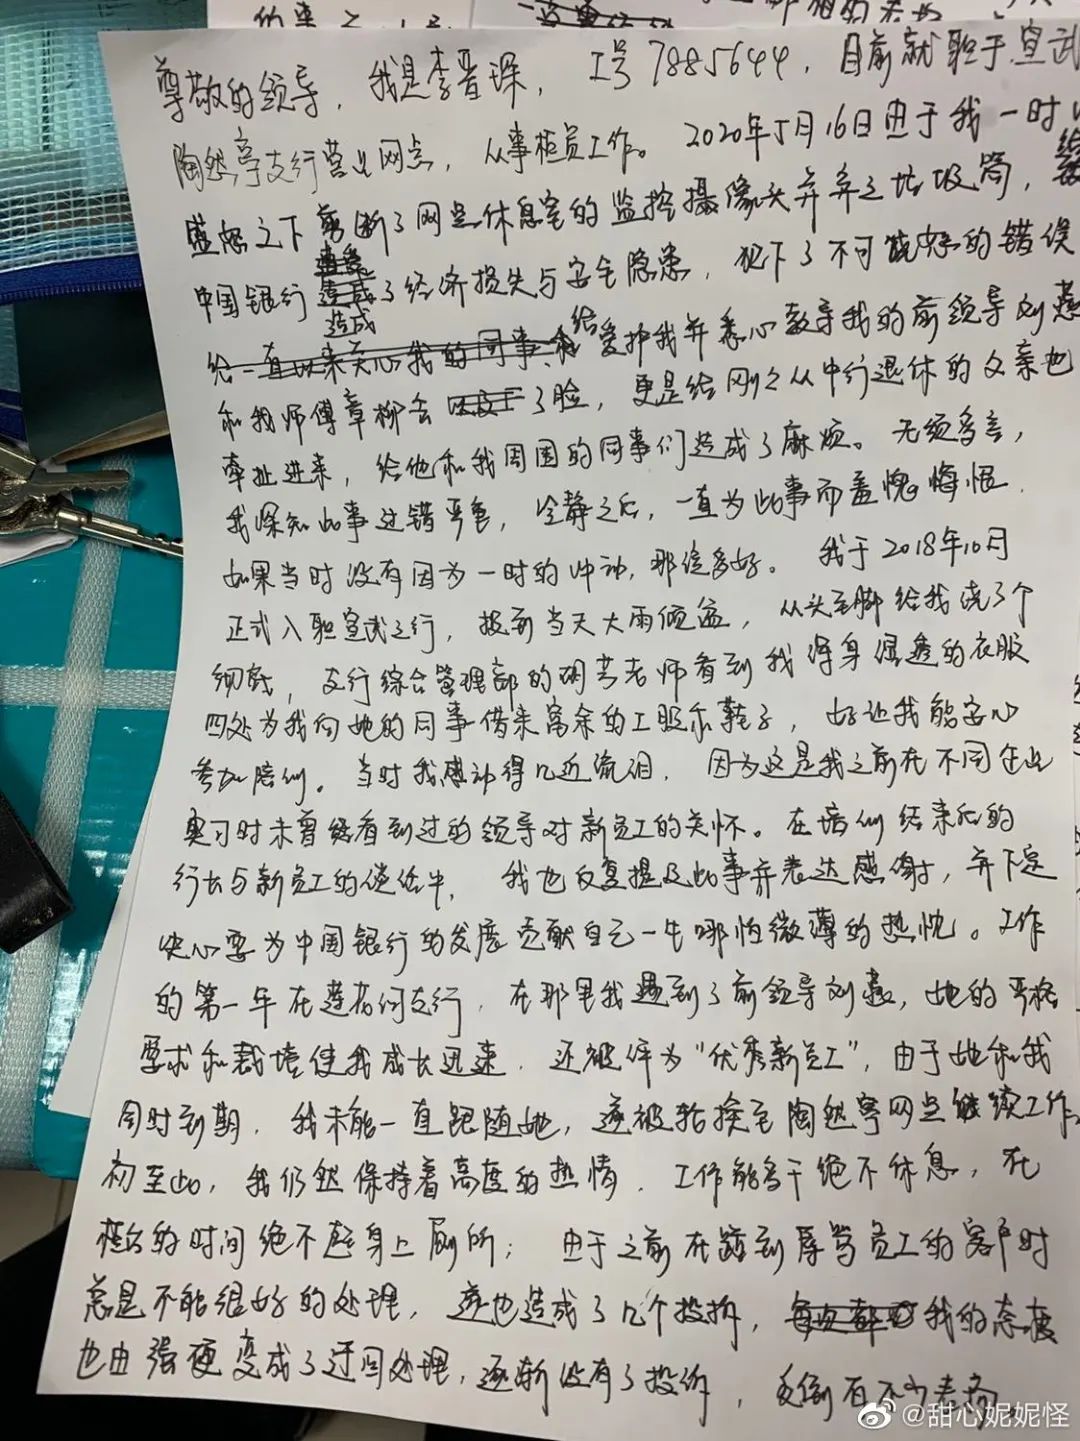 尊敬的领导，我是李晋琛，工号7885644，目前就职于宣武
陶然亭支行营业网点，从事柜员工作。2020年5月16日由于我一时
盛怒之下剪断了网点休息室的监控摄像头并弃之垃圾筒，给
中国银行造成了经济损失与安全隐患，犯下了不可饶恕的错误
给爱护我并悉心教导我的前领导刘燕
和我师傅章柳去了脸，更是给刚刚从中行退休的父亲也
牵扯进来，给他和我周围的同事们造成了麻烦。无须多言，
我深知此事过错严重，冷静之后，一直为此事而羞愧悔恨.
如果当时没有因为一时的冲动，那该多好。我于2018年10月
正式入职宣武支行，报到当天大雨倾盆，从头至脚给我浇了个
彻底，支行综合管理部的胡芳老师看到我浑身湿透的衣服
四处为我向她的同事借来富余的工服和鞋子，好让我能安心
参加培训。当时我感动得几近流泪，因为这是我之前在不同企业
实习时未曾经看到过的领导对新员工的关怀。在培训结束后的
行长与新员工的谈话中，我也反复提及此事并表达感谢，并下定
决心要为中国银行的发展贡献自己一生哪怕微薄的热忱。工作
的第一年在莲花河支行，在那里我遇到了前领导刘燕，她的严格
要求和栽培使我成长迅速，还被评为“优秀新员工”，由于她和我
同时到期，我未能一直跟随她，遂被轮换至陶然亭网点继续工作。
初至此，我仍然保持着高度的热情，工作能多干绝不休息，在
柜台的时间绝不起身上厕所；由于之前在踫到辱骂员工的客户时
总是不能很好的处理，遂也造成了几个投诉，我的态度
也由强硬变成了迂回处理，逐渐没有了投诉，反倒有不少表扬。
@甜心妮妮怪